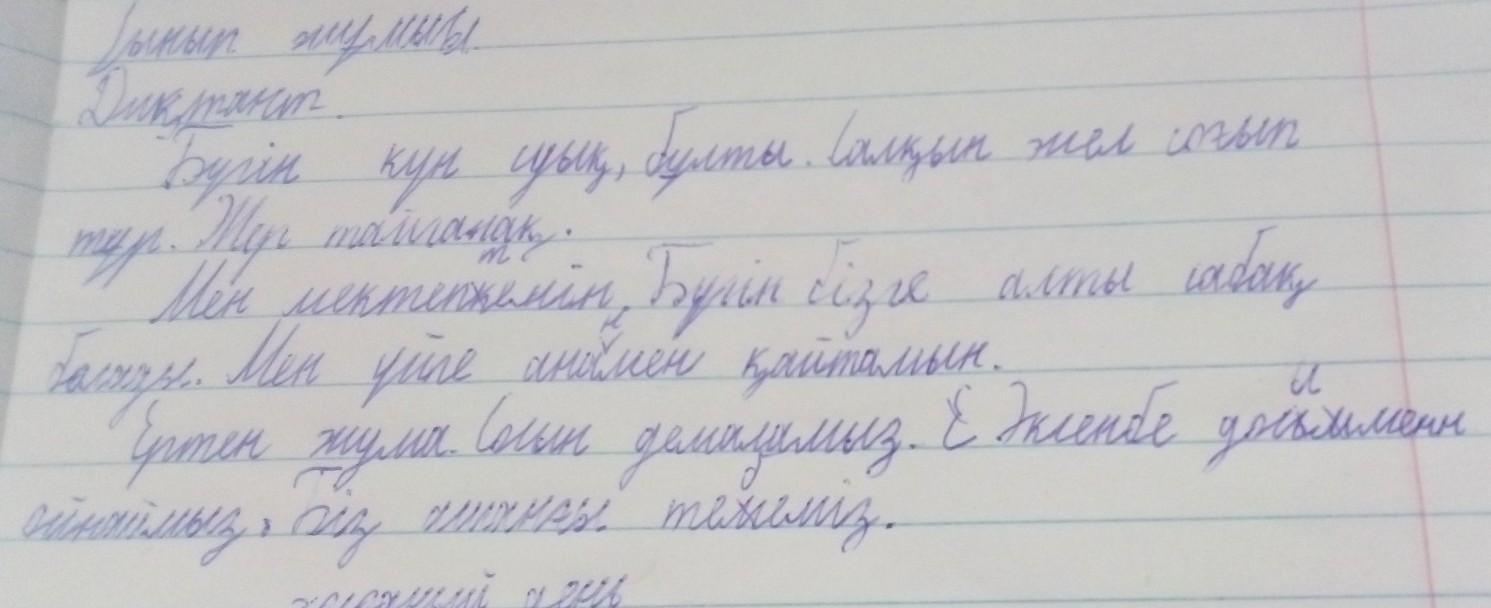 Сынып жумысы
Диктант.
Бүгін күн суық, бұлты. Салқын жел соғып
тұр. Жер тайғанақ.
Мен мектепкемін. Бүгін бізге алты сабақ
болды. Мен үйге анаммен қайтамын.
Ертен жұма. Соын демаламыз. Әкенбе досыммен
ойнаймыз. Біз шананы тебеміз.
холодный день